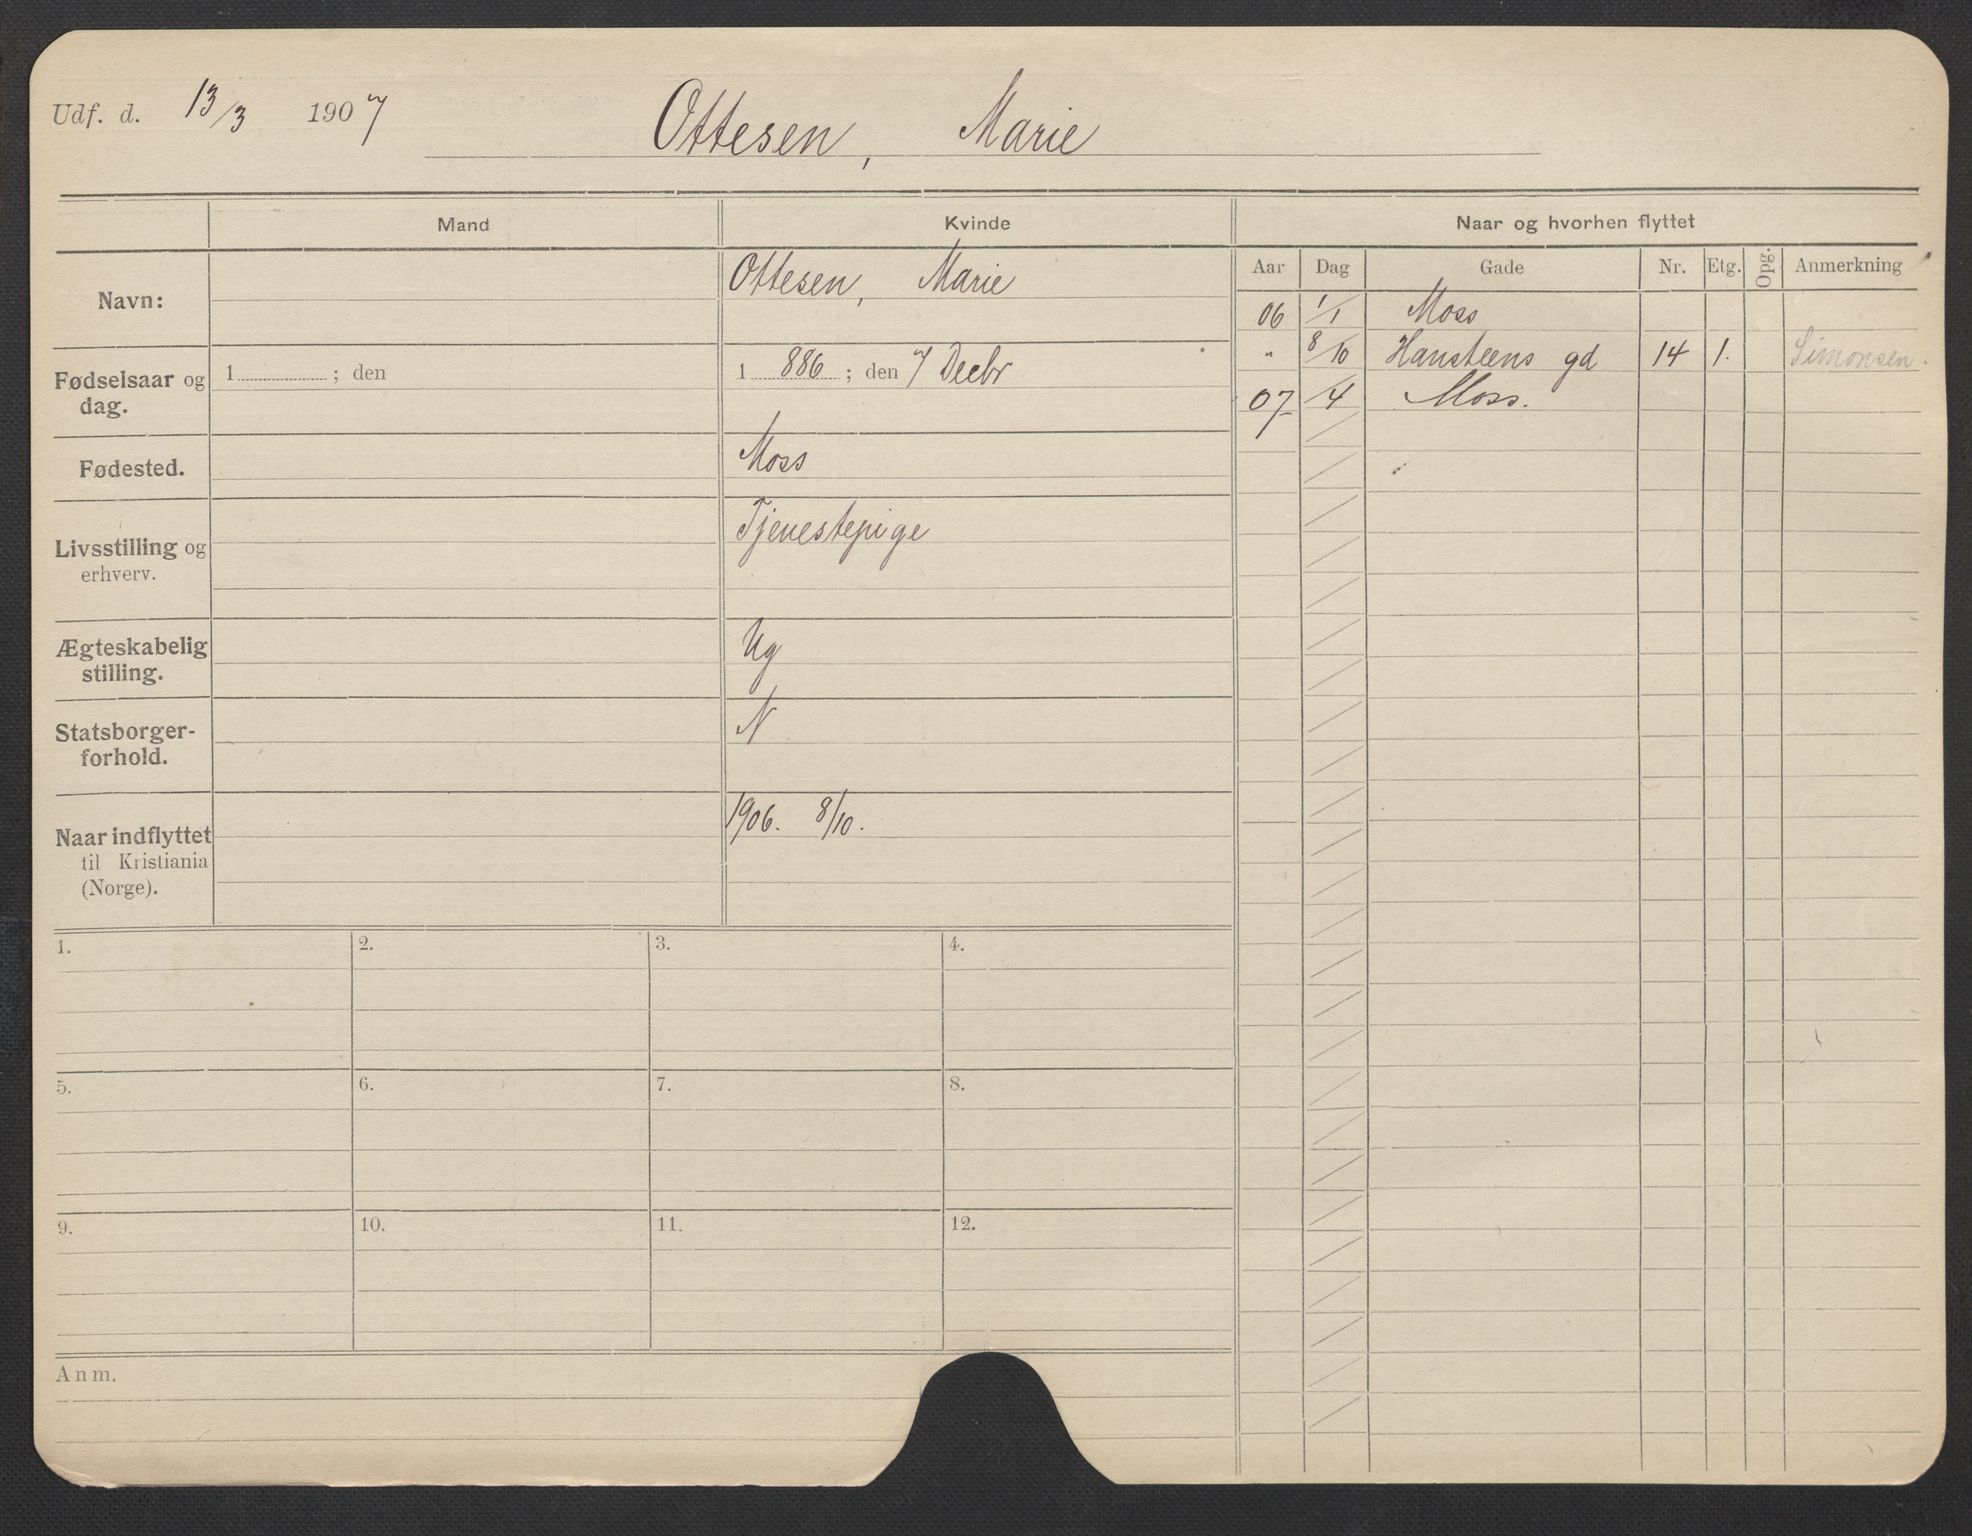 Udf. d. 13/3 1907
Ottesen, Marie
Mand
Kvinde
Naar og hvorhen flyttet
Aar Dag Gade Nr. Etg. Opg. Anmerkning
Navn:
Ottesen, Marie
06 1/1 Moss
" 8/10 Hansteens gd 14 1. Simonsen.
07 /4 Moss.
Fødselsaar og
dag.
1 ; den
1 886 ; den 7 Decbr
Fødested.
Moss
Livsstilling og
erhverv.
Tjenestepige
Ægteskabelig
stilling.
Ug
Statsborger-
forhold.
N
Naar indflyttet
til Kristiania
(Norge).
1906. 8/10.
1. 2. 3. 4.
5. 6. 7. 8.
9. 10. 11. 12.
Anm.